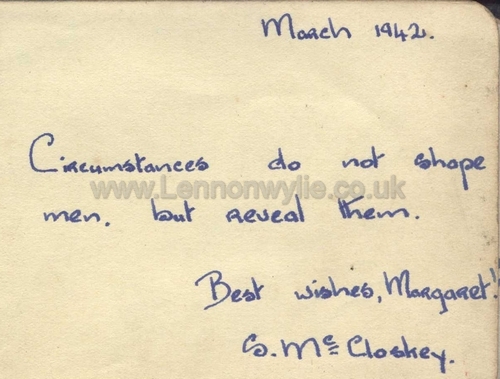 March 1942.
Circumstances do not shape
www.Lennonwylie.co.uk
men, but reveal them.
Best wishes, Margaret!
S. Mc Closkey.